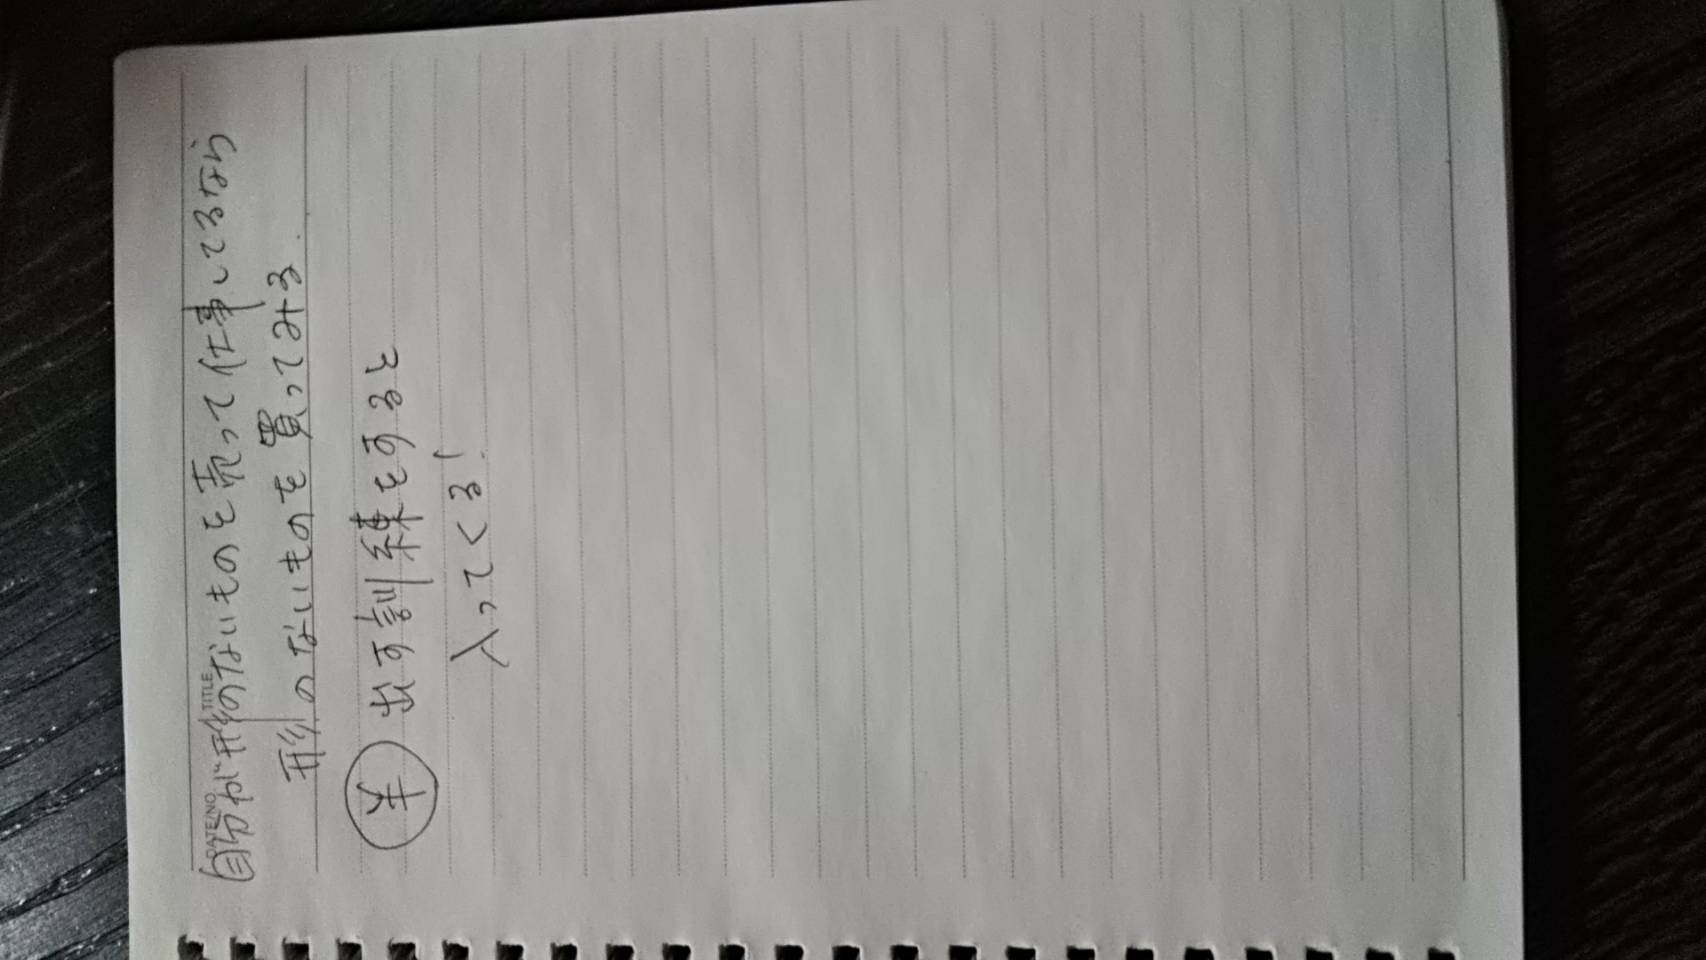 DATE/NO. TITLE
自分が形のないものを売って仕事してるなら
形のないものを買ってみる.
¥ 出す訓練をすると
入ってくる!